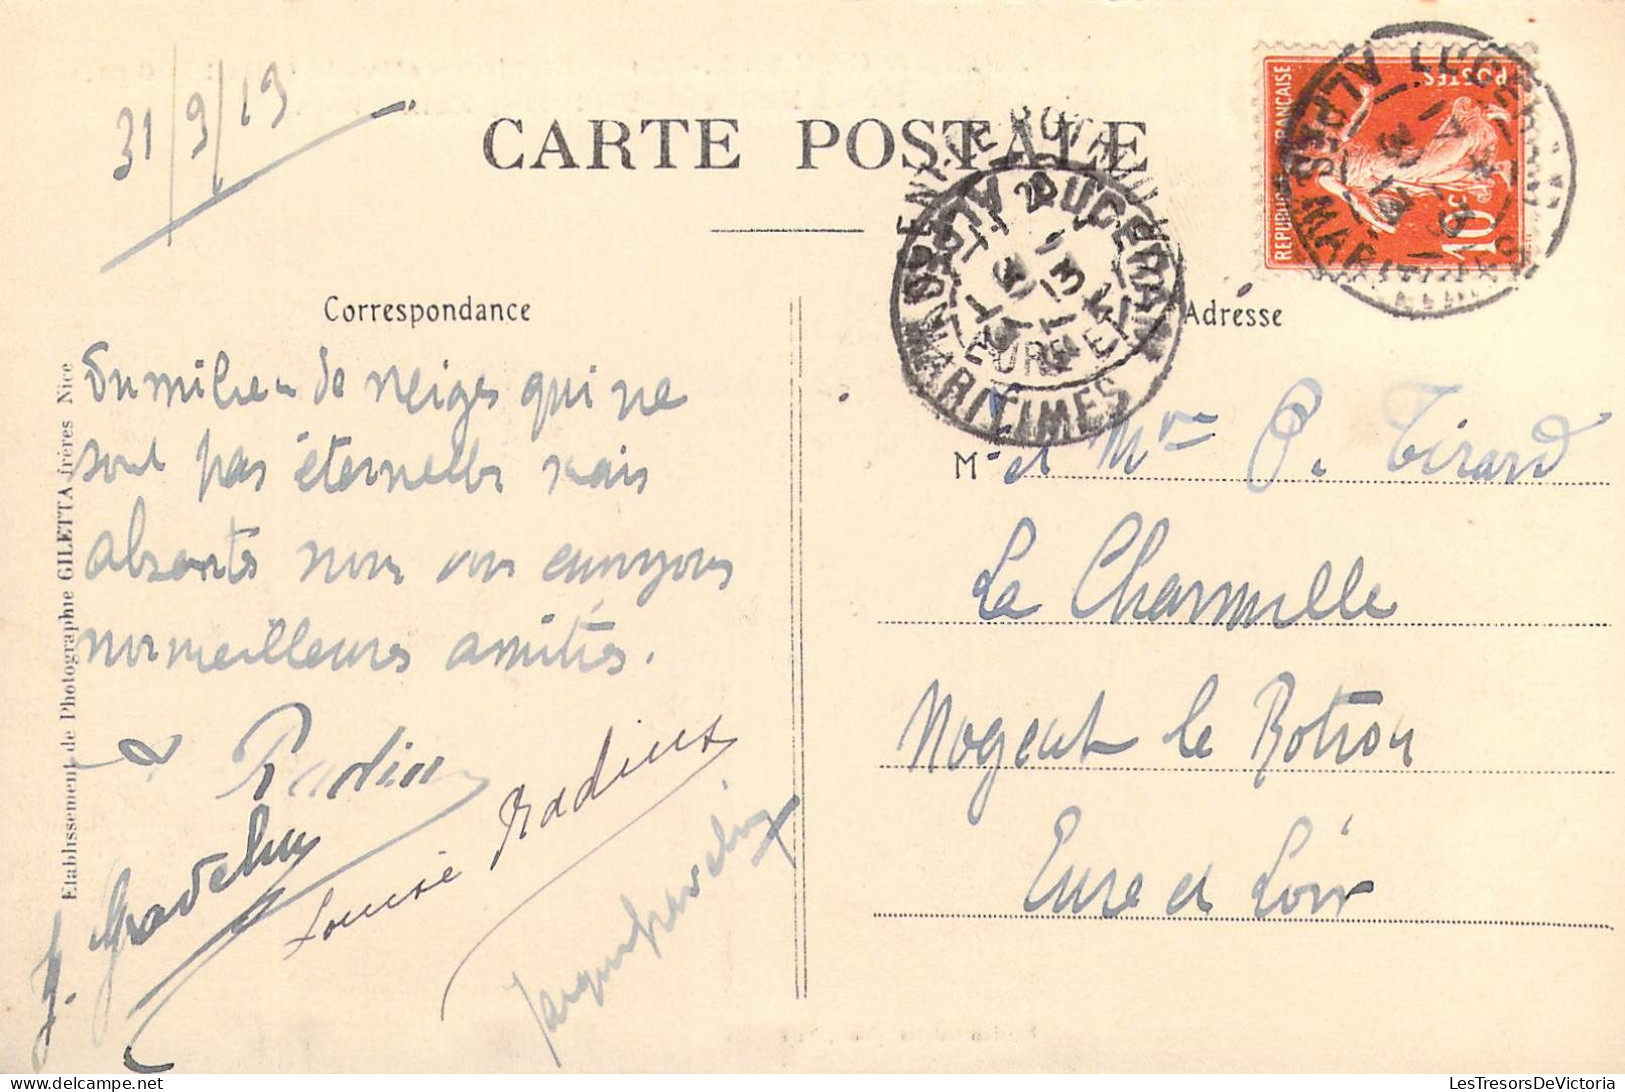 31/9/13
CARTE POSTALE
REPUBLIQUE FRANÇAISE
POSTES
10 c
LUCERAM
ALPES MARITIMES
LUCERAM
MARITIMES
EURE ET
Correspondance
Adresse
Du milieu de neiges qui ne
sont pas éternelles mais
absentes nous vous envoyons
nos meilleures amitiés.
Louise Radius
M et Mme P. Tirard
La Charmille
Nogent le Rotrou
Eure et Loir
Etablissement de Photographie GILETTA frères Nice
LesTresorsDeVictoria
www.delcampe.net